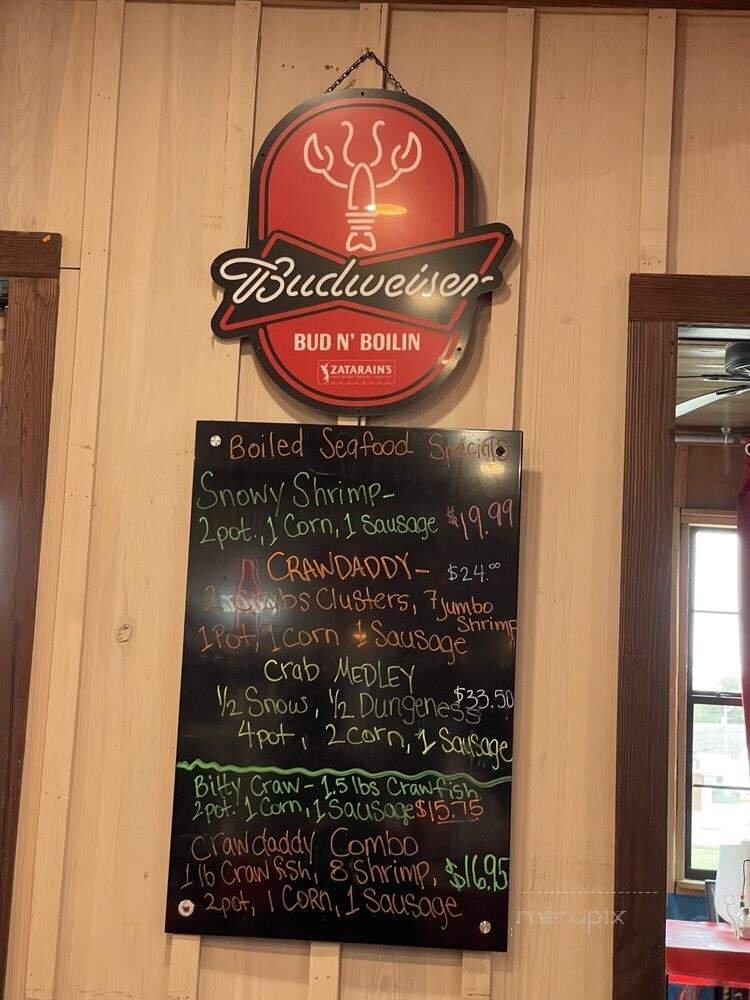 Budweiser
BUD N' BOILIN
ZATARAIN'S
Boiled Seafood Specials
Snowy Shrimp-
2pot., 1 Corn, 1 Sausage $19.99
CRAWDADDY- $24.00
Clusters, 7 jumbo
Shrimp
1 Pot, 1 Corn 1 Sausage
Crab MEDLEY
$33.50
1/2 Snow, 1/2 Dungeness
4pot, 2 corn, 1 Sausage
Bitty Craw - 1.5 lbs Crawfish
2pot. 1 Corn, 1 Sausage $15.75
Crawdaddy Combo
1 lb Crawfish, 8 Shrimp, $16.95
2pot, 1 Corn, 1 Sausage
menupix